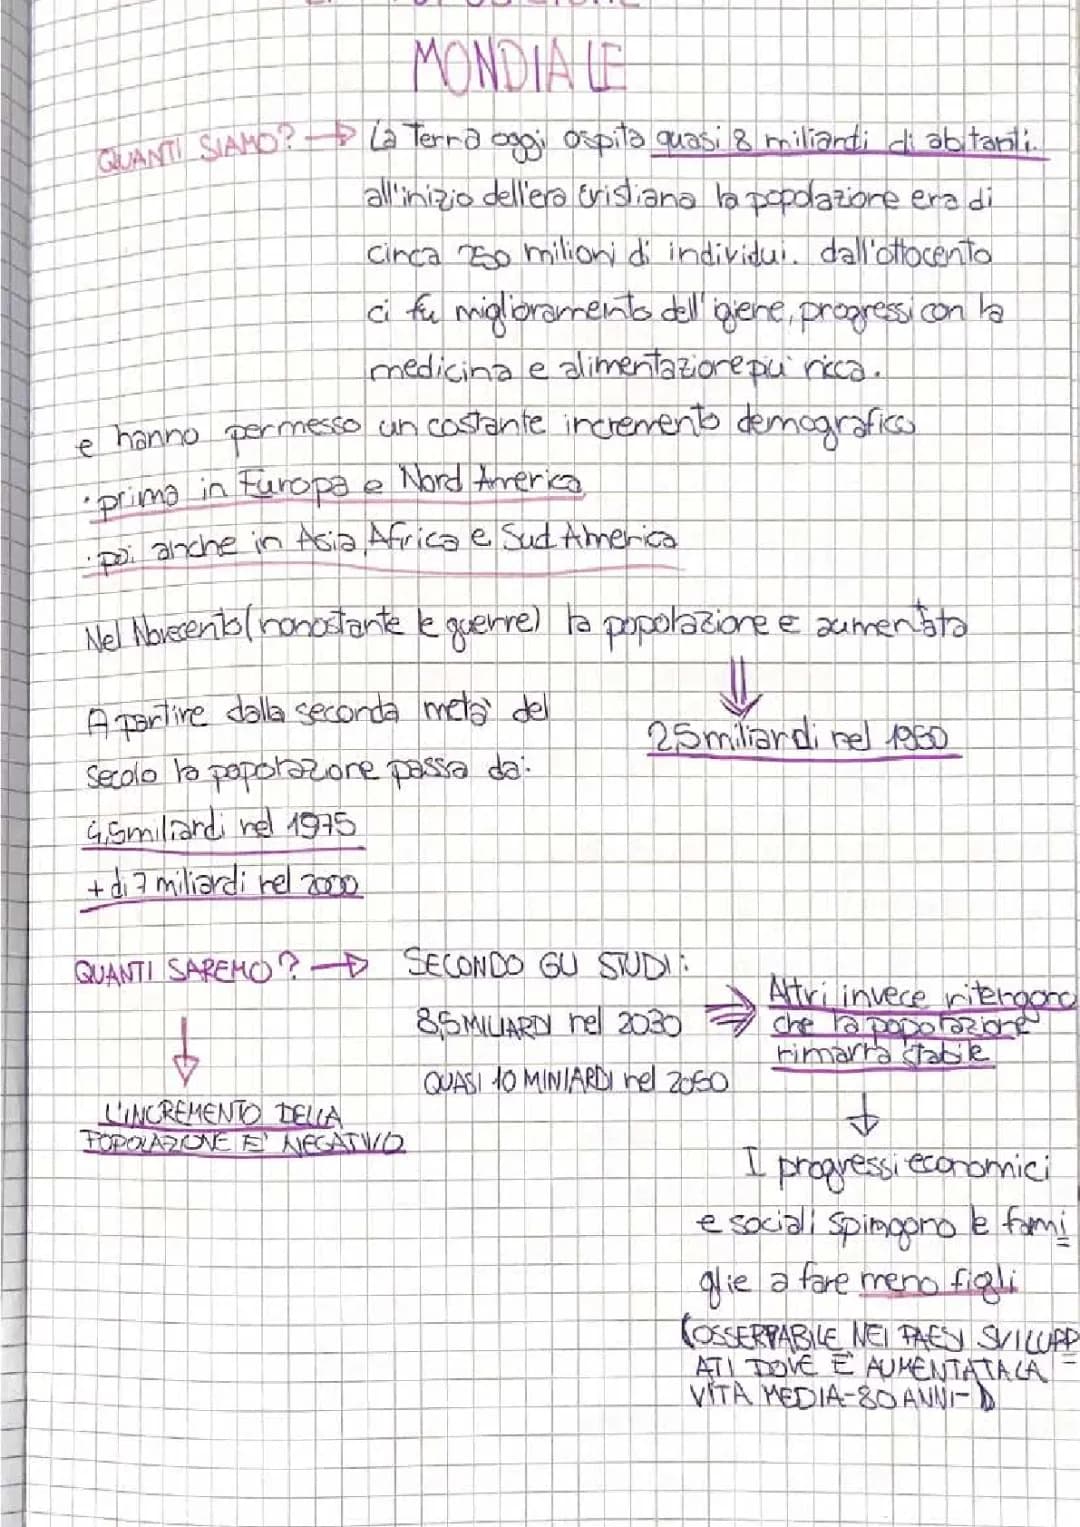 MONDIALE
QUANTI SIAMO? → La Terra oggi ospita quasi 8 miliardi di abitanti.
all'inizio dell'era cristiana la popolazione era di
circa 250 milioni di individui. dall'ottocento
ci fu miglioramento dell'igiene, progressi con la
medicina e alimentazione più ricca.
e hanno permesso un costante incremento demografico
· prima in Europa e Nord America
· poi anche in Asia, Africa e Sud America
Nel Novecento (nonostante le guerre) la popolazione e aumentata
⇓
2,5 miliardi nel 1950
A partire dalla seconda metà del
secolo la popolazione passa da:
4,5 miliardi nel 1975
+ di 7 miliardi nel 2000
QUANTI SAREMO? → SECONDO GLI STUDI:
8,5 MILIARDI nel 2030
QUASI 10 MINIARDI nel 2050
⇒ Altri invece ritengono
che la popolazione
rimarrà stabile
↓
L'INCREMENTO DELLA
POPOLAZIONE E' NEGATIVO
↓
I progressi economici
e sociali spingono le fami
glie a fare meno figli
(OSSERVABILE NEI PAESI SVILUPP
ATI DOVE È AUMENTATA LA
VITA MEDIA-80 ANNI-)